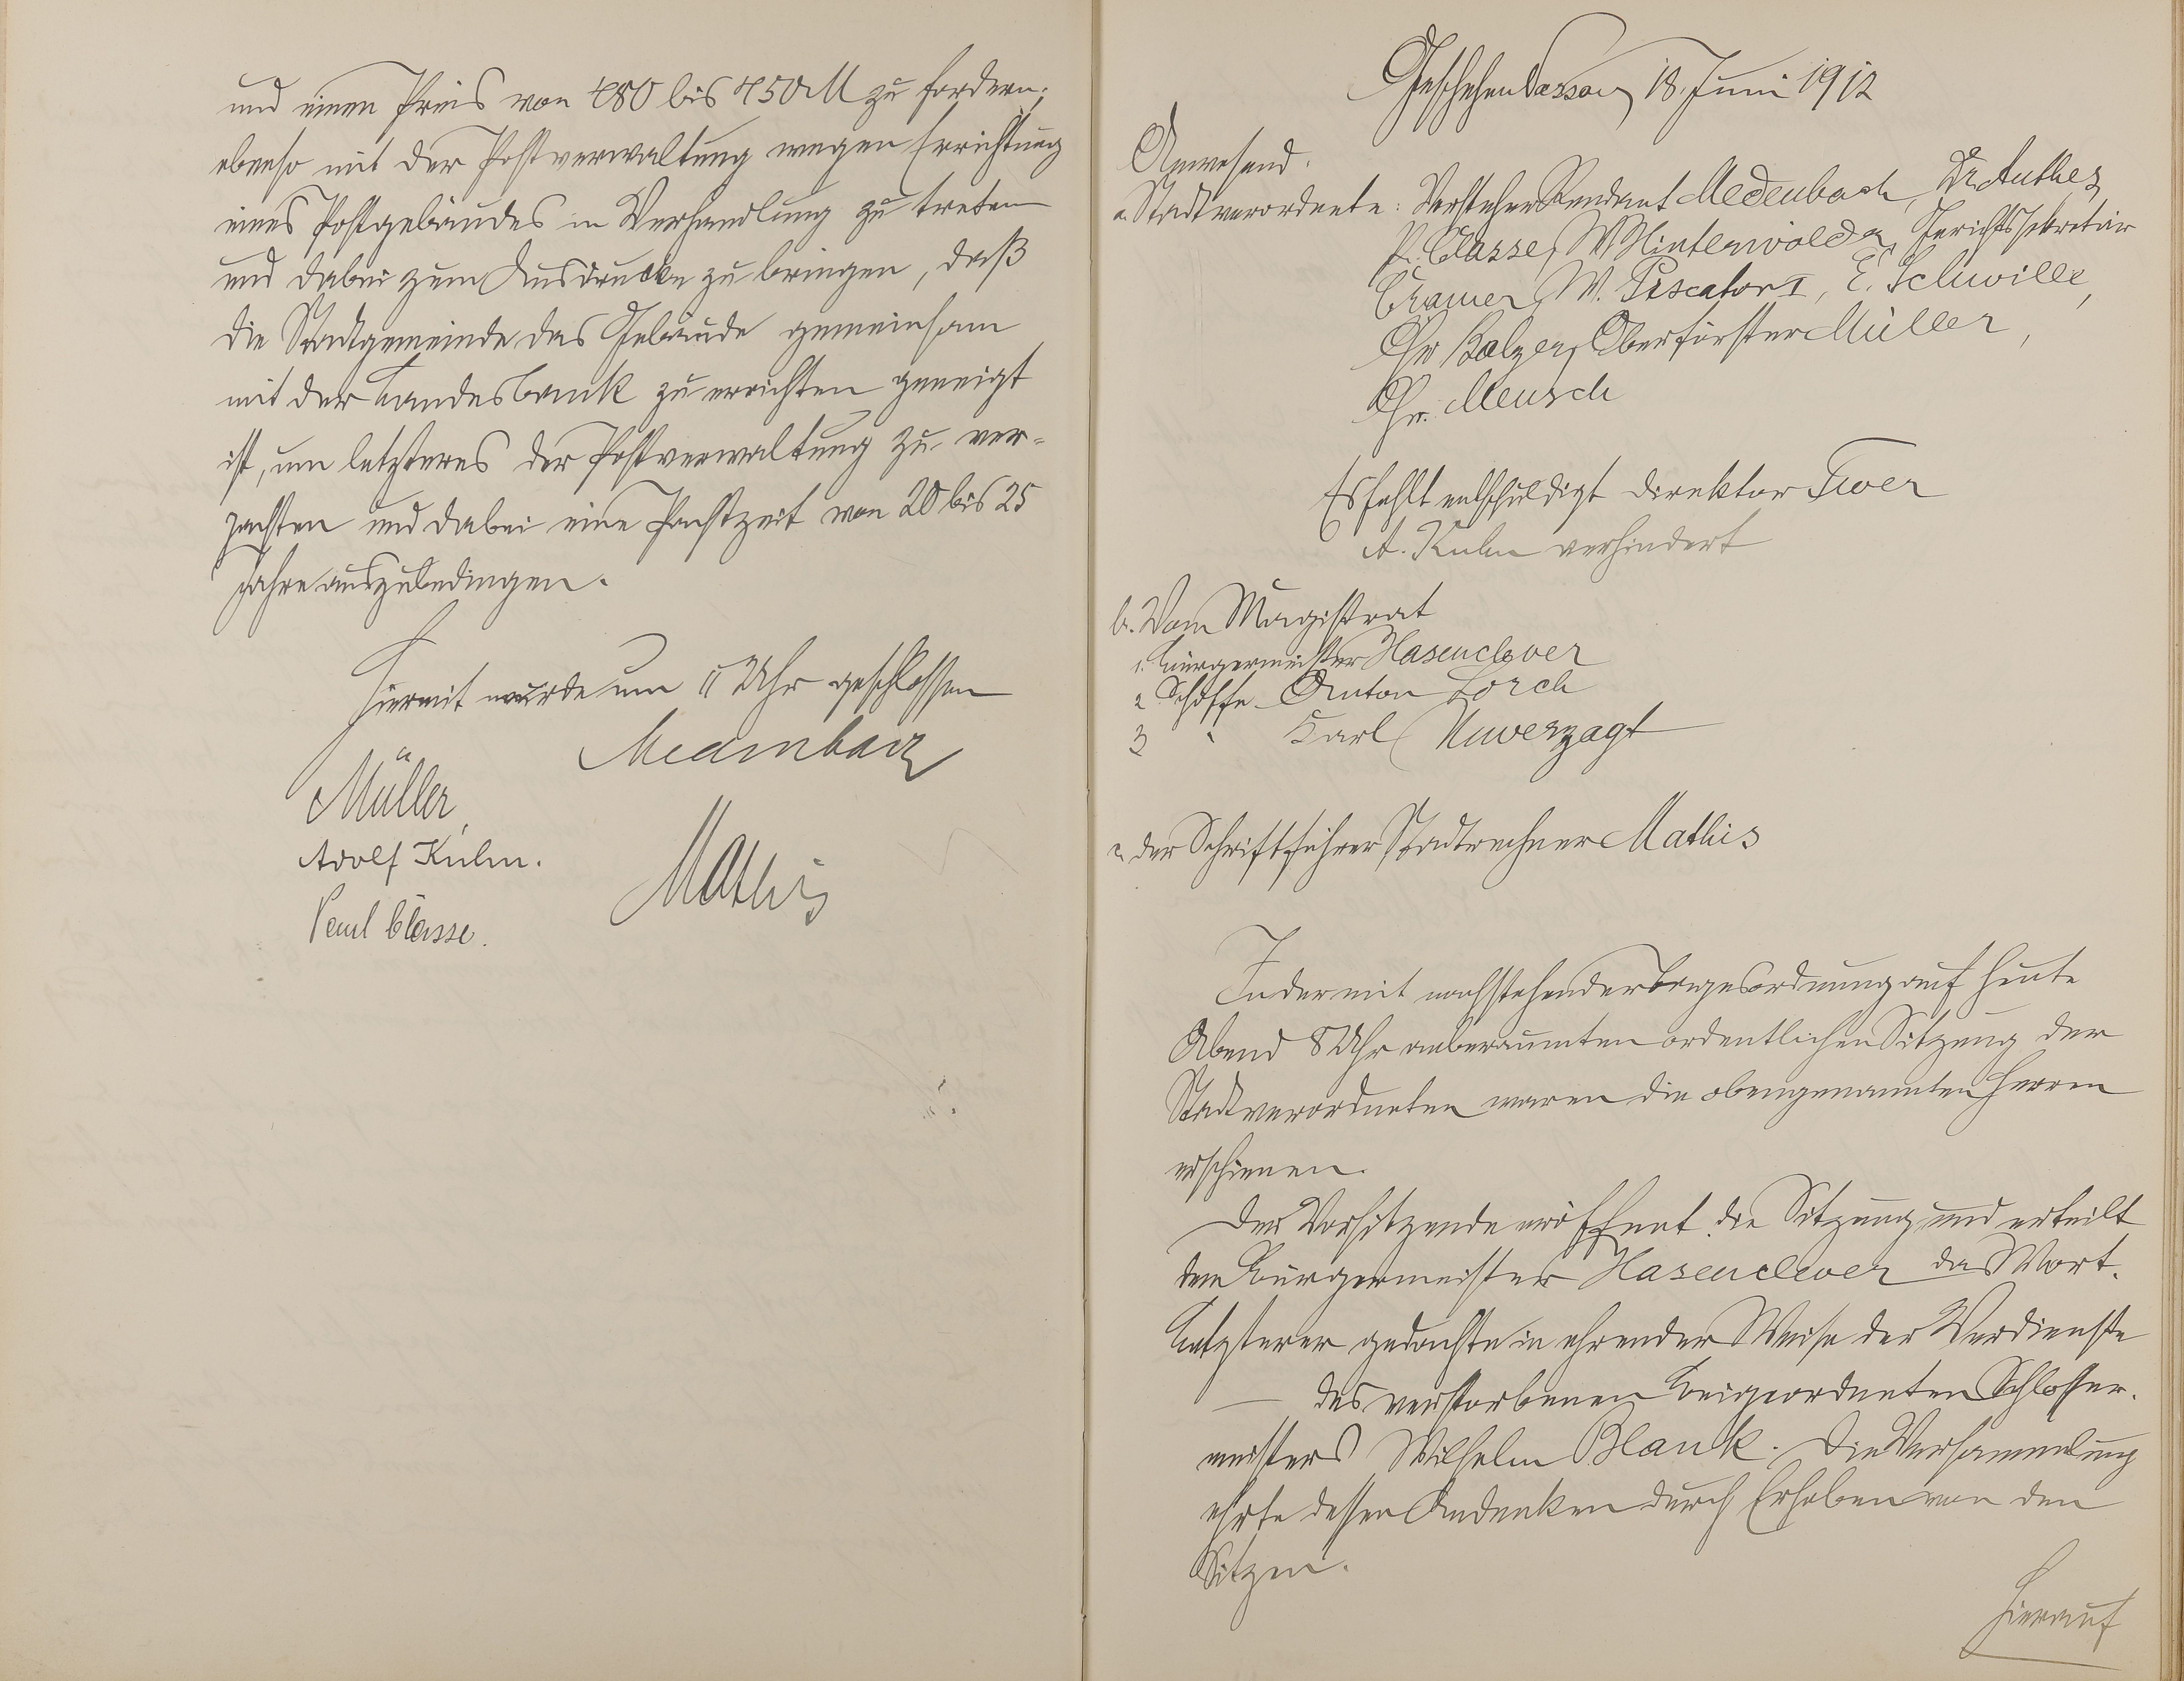 und einen Preis von 480 bis 450 M zu fordern;
ebenso mit der Postverwaltung wegen Errichtung
eines Postgebäudes in Verhandlung zu treten
und dabei zum Ausdrucke zu bringen, daß
die Stadtgemeinde das Gebäude gemeinsam
mit der Landesbank zu errichten geneigt
ist, um letzteres der Postverwaltung zu ver-
pachten und dabei eine Pachtzeit von 20 bis 25
Jahre auszubedingen.
Hiermit wurde um 11 Uhr geschlossen
Medenbach
Müller
Adolf Kuhn.
Mathis
Paul Classe.
Geschehen Nassau, 18. Juni 1912
Anwesend:
a. Stadtverordnete: Vorsteher Rendant Medenbach, Dr. Anthes,
P. Classe, W Hinterwälder, Gerichtssekretär
Cramer, W. Piscator I, E. Schwille,
Chr Balzer, Oberförster Müller,
Chr. Meusch
Es fehlt entschuldigt Direktor Twer
A. Kuhn verhindert
b. Vom Magistrat
1. Bürgermeister Hasenclever
2 Schöffe Anton Lorch
3 " Karl Unverzagt
c. der Schriftführer Stadtrechner Mathis
In der mit nachstehender Tagesordnung auf heute
Abend 8 Uhr anberaumten ordentlichen Sitzung der
Stadtverordneten waren die obengenannten Herren
erschienen.
Der Vorsitzende eröffnet die Sitzung und erteilt
dem Bürgermeister Hasenclever das Wort.
Letzterer gedachte in ehrender Weise der Verdienste
— des verstorbenen Beigeordneten Schlosser-
meisters Wilhelm Blank. Die Versammlung
ehrte dessen Andenken durch Erheben von den
Sitzen.
Hierauf